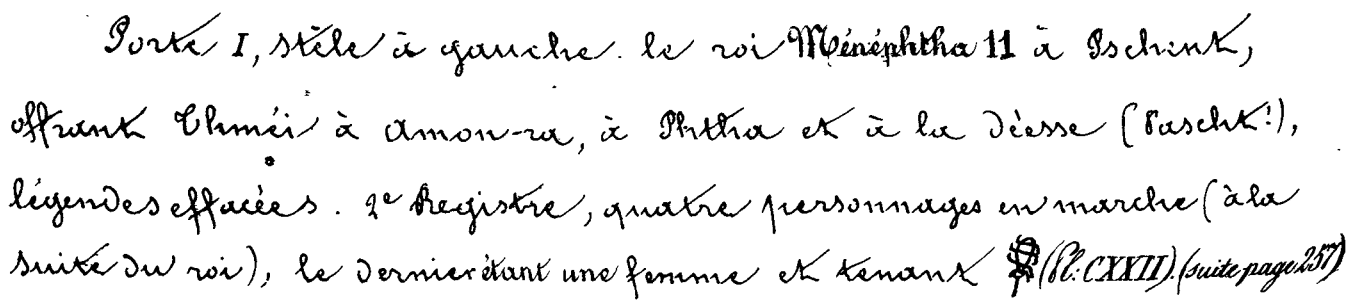 Porte I, stèle à gauche. le roi Ménéphtha II à Pschent,
offrant Thméi à Amon-ra, à Phtha et à la Déesse (Pascht!),
légendes effacées. 2e Registre, quatre personnages en marche (à la
suite du roi), le dernier étant une femme et tenant (Pl: CXXII). (suite page 257)